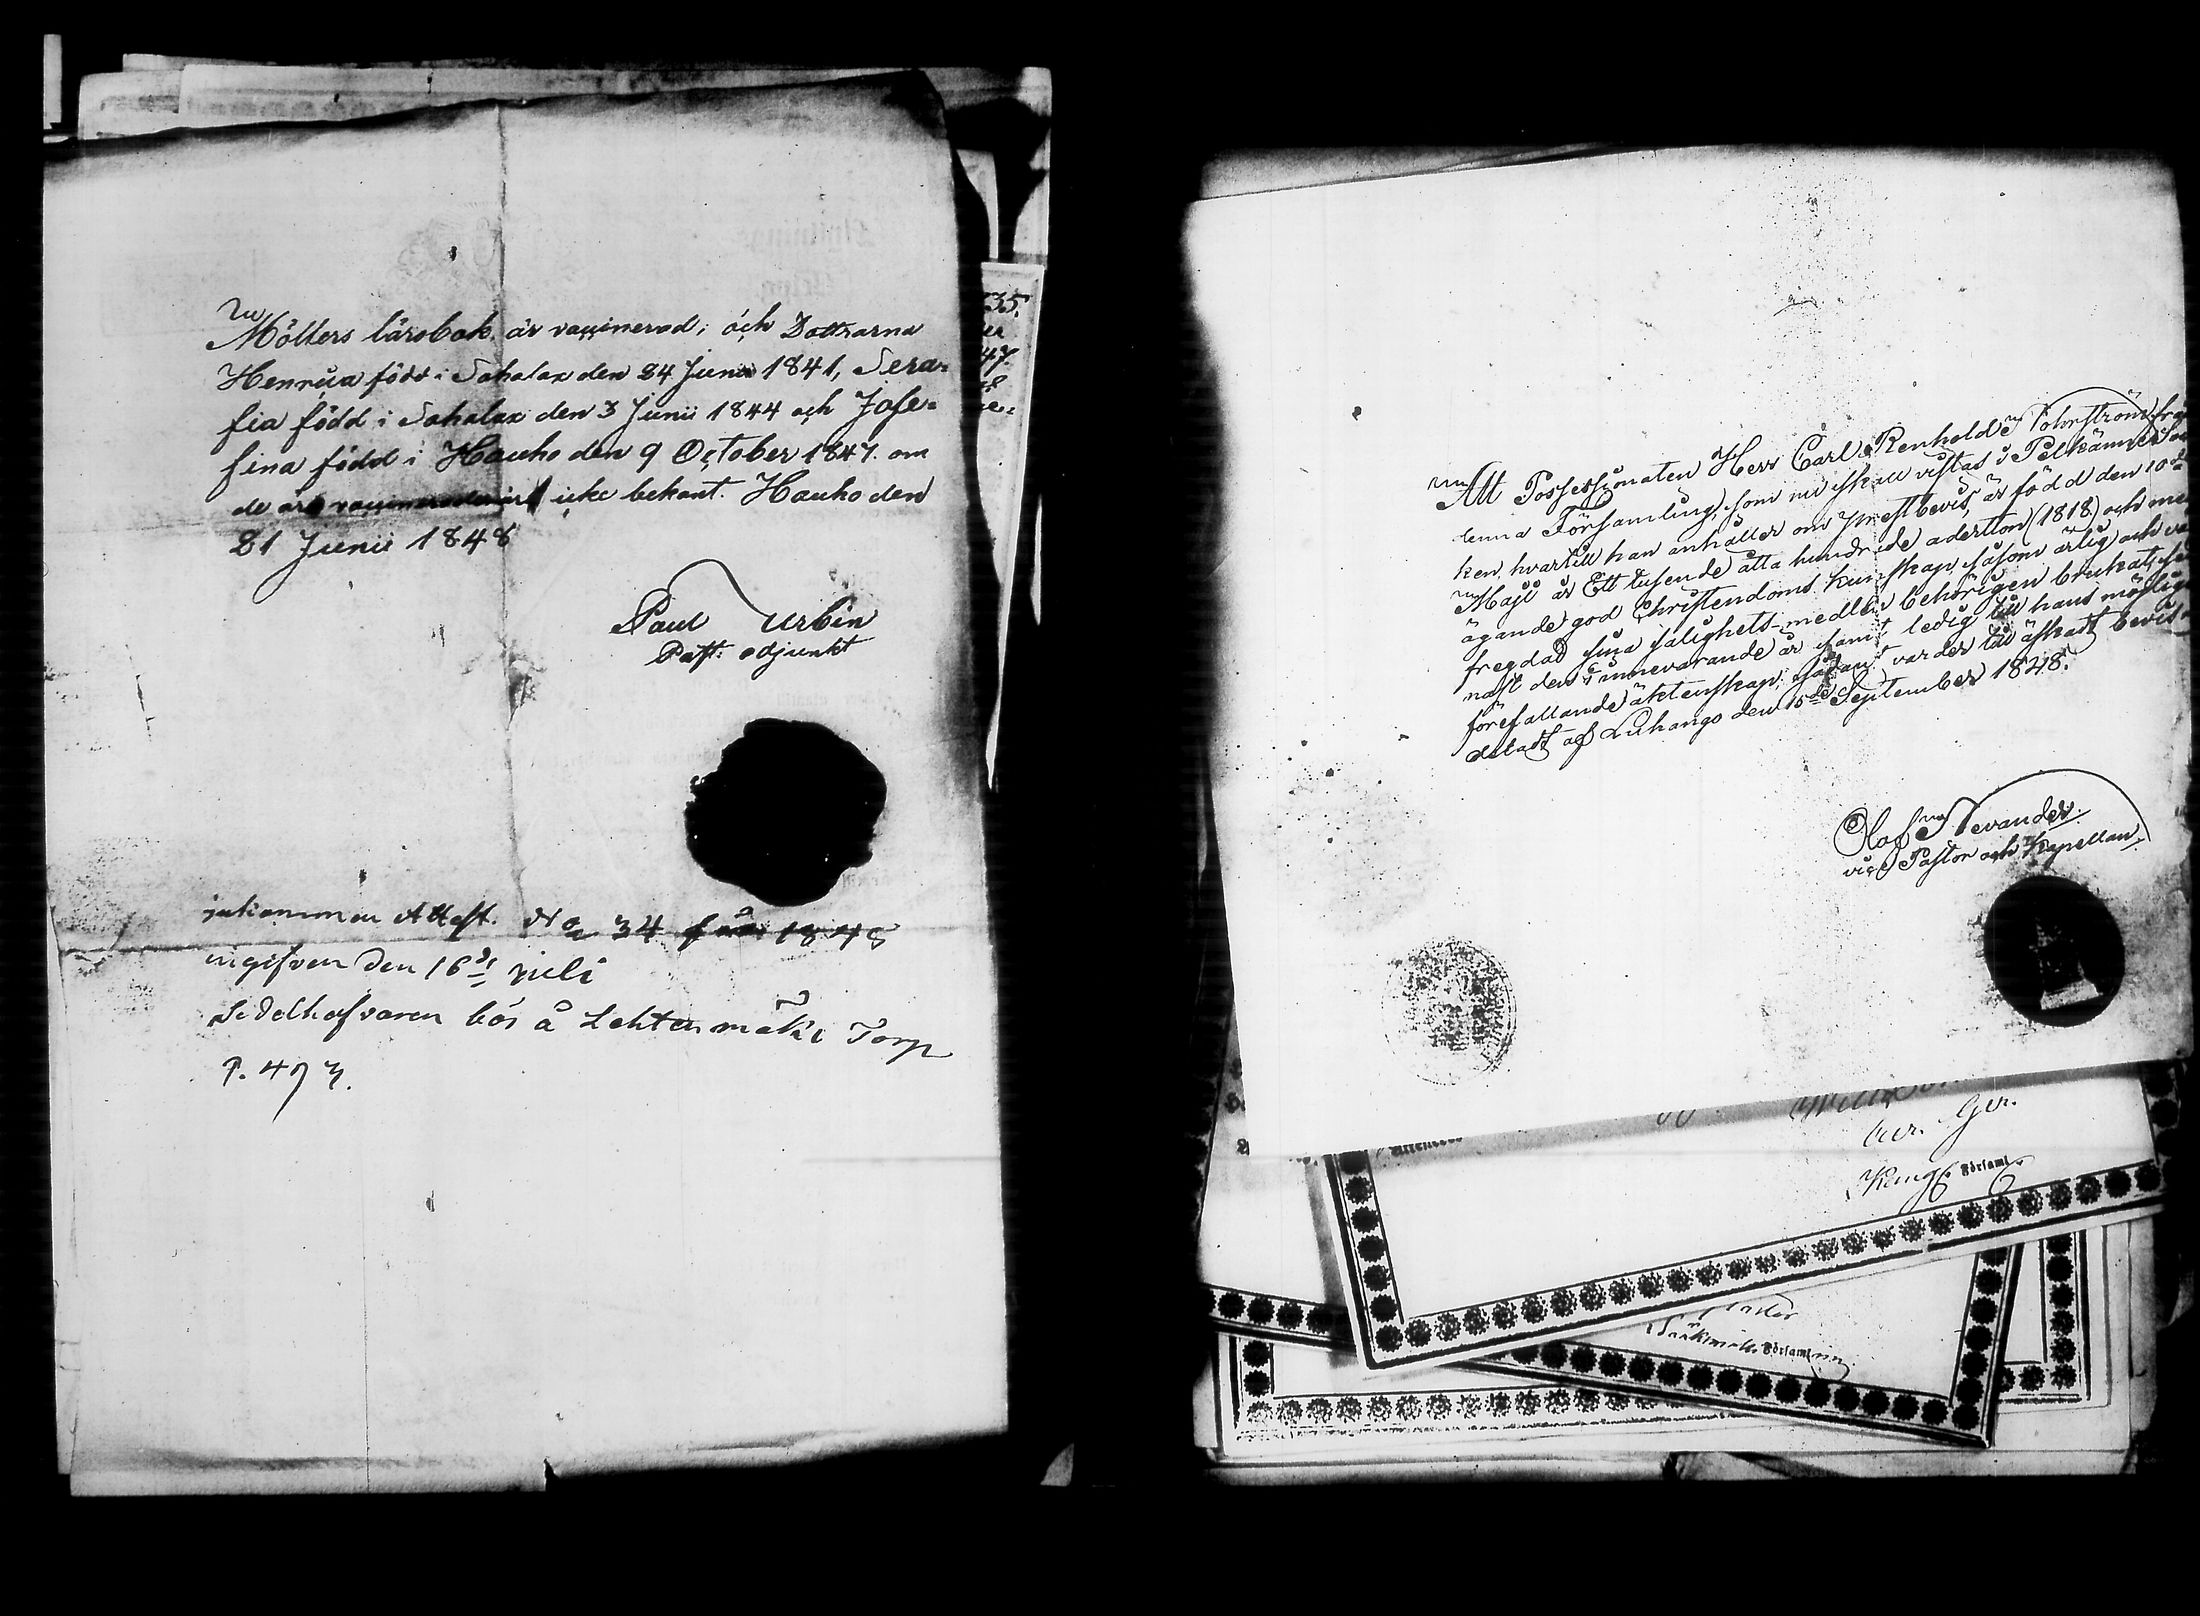 Möllers lärobok, är vaccinerad; och Döttrarna
Henrica född i Sahalax den 24 Junii 1841, Sera-
fia född i Sahalax den 3 Junii 1844 och Jose-
fina född i Hauho den 9 October 1847. om
de äro vaccinerade är icke bekant. Hauho den
21 Junii 1848
Paul Urbin
Past. adjunkt
inkommen Attest. No 34 för 1848
ingifven den 16de juli
Sedelhafvaren bor å Lehtenmäki Torp
P. 473.
35.
47.
Att Possessionaten Herr Carl Renhold Tohrström från
denna Församling, som nu skall vistas i Pelkänne Soc
ken, hvartill han anhåller om prestbevis, är född den 10de
Maji år Ett tusende åtta hundrade aderton (1818) och med
ägande god Christendoms kunskap, såsom ärlig och
fregdad sina salighets-medlen behörigen brukat,
näst den innevarande år samt ledig till hans möjligen
förefallande äktenskap; sådant varder till äskadt bevis
deladt af Luhango den 15de September 1848.
Olof Nevander
vice Pastor och Kapellan.
Ger.
Församl.
Församling